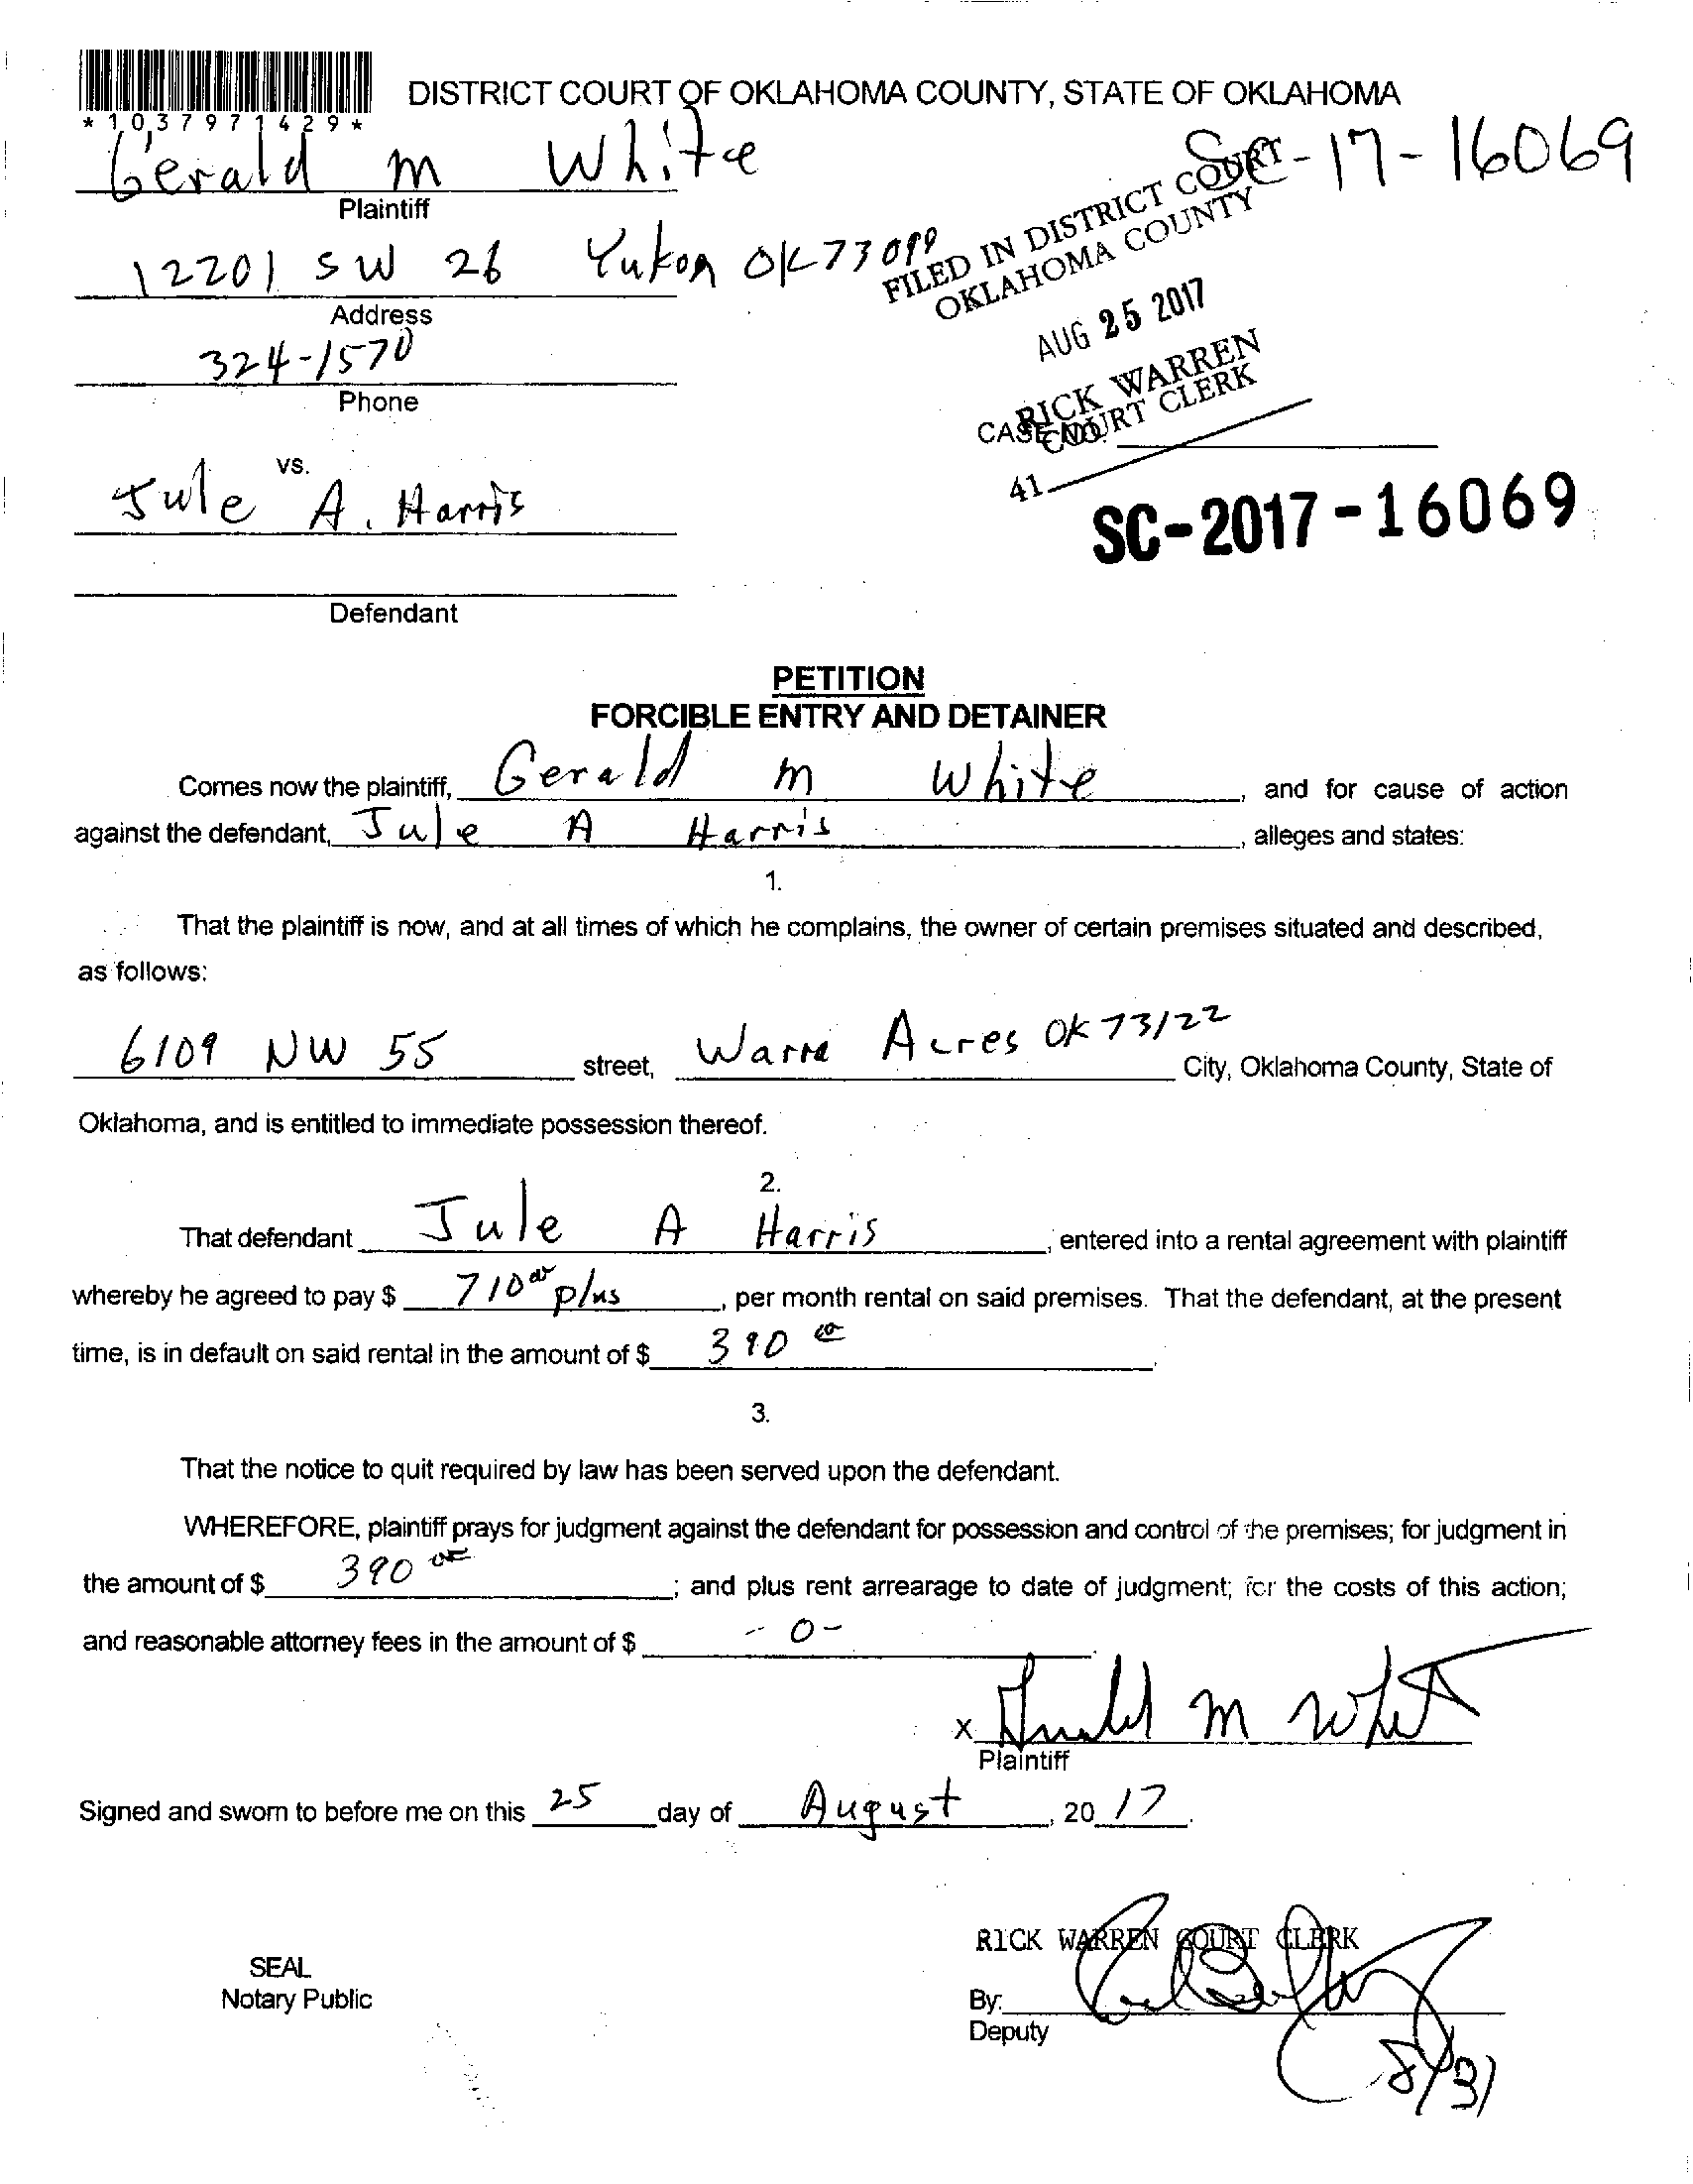 DISTRICT COURT OF OKLAHOMA COUNTY, STATE OF OKLAHOMA
* 1 0 3 7 9 7 1 4 2 9 *
Gerald m White
SC-17-16069
Plaintiff
12201 SW 26 Yukon OK 73099
FILED IN DISTRICT COURT
OKLAHOMA COUNTY
Address
AUG 25 2017
324-1570
Phone
RICK WARREN
COURT CLERK
CASE NO.
41
vs.
Jule A. Harris
SC-2017-16069
Defendant
PETITION
FORCIBLE ENTRY AND DETAINER
Comes now the plaintiff, Gerald m White, and for cause of action
against the defendant, Jule A Harris, alleges and states:
1.
That the plaintiff is now, and at all times of which he complains, the owner of certain premises situated and described,
as follows:
6109 NW 55 street, Warre Acres OK 73122 City, Oklahoma County, State of
Oklahoma, and is entitled to immediate possession thereof.
2.
That defendant Jule A Harris, entered into a rental agreement with plaintiff
whereby he agreed to pay $ 710 00 plus, per month rental on said premises. That the defendant, at the present
time, is in default on said rental in the amount of $ 390 00.
3.
That the notice to quit required by law has been served upon the defendant.
WHEREFORE, plaintiff prays for judgment against the defendant for possession and control of the premises; for judgment in
the amount of $ 390 00; and plus rent arrearage to date of judgment; for the costs of this action;
and reasonable attorney fees in the amount of $ - 0 -.
x Gerald m White
Plaintiff
Signed and sworn to before me on this 25 day of August, 20 17.
RICK WARREN COURT CLERK
SEAL
Notary Public
By:
Deputy
8/31